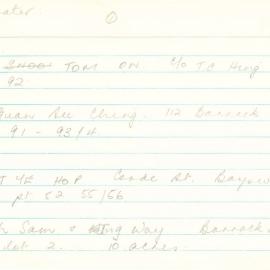 ater.
①
TOM ON C/O T.C. Hing
92.
Quan Au Ching. 112 Barrack
91 - 93/4.
T YE HOP Conde St. Baysw
pt 52 55/56
Sam & Way Barrack
lot 2. 10 acres.